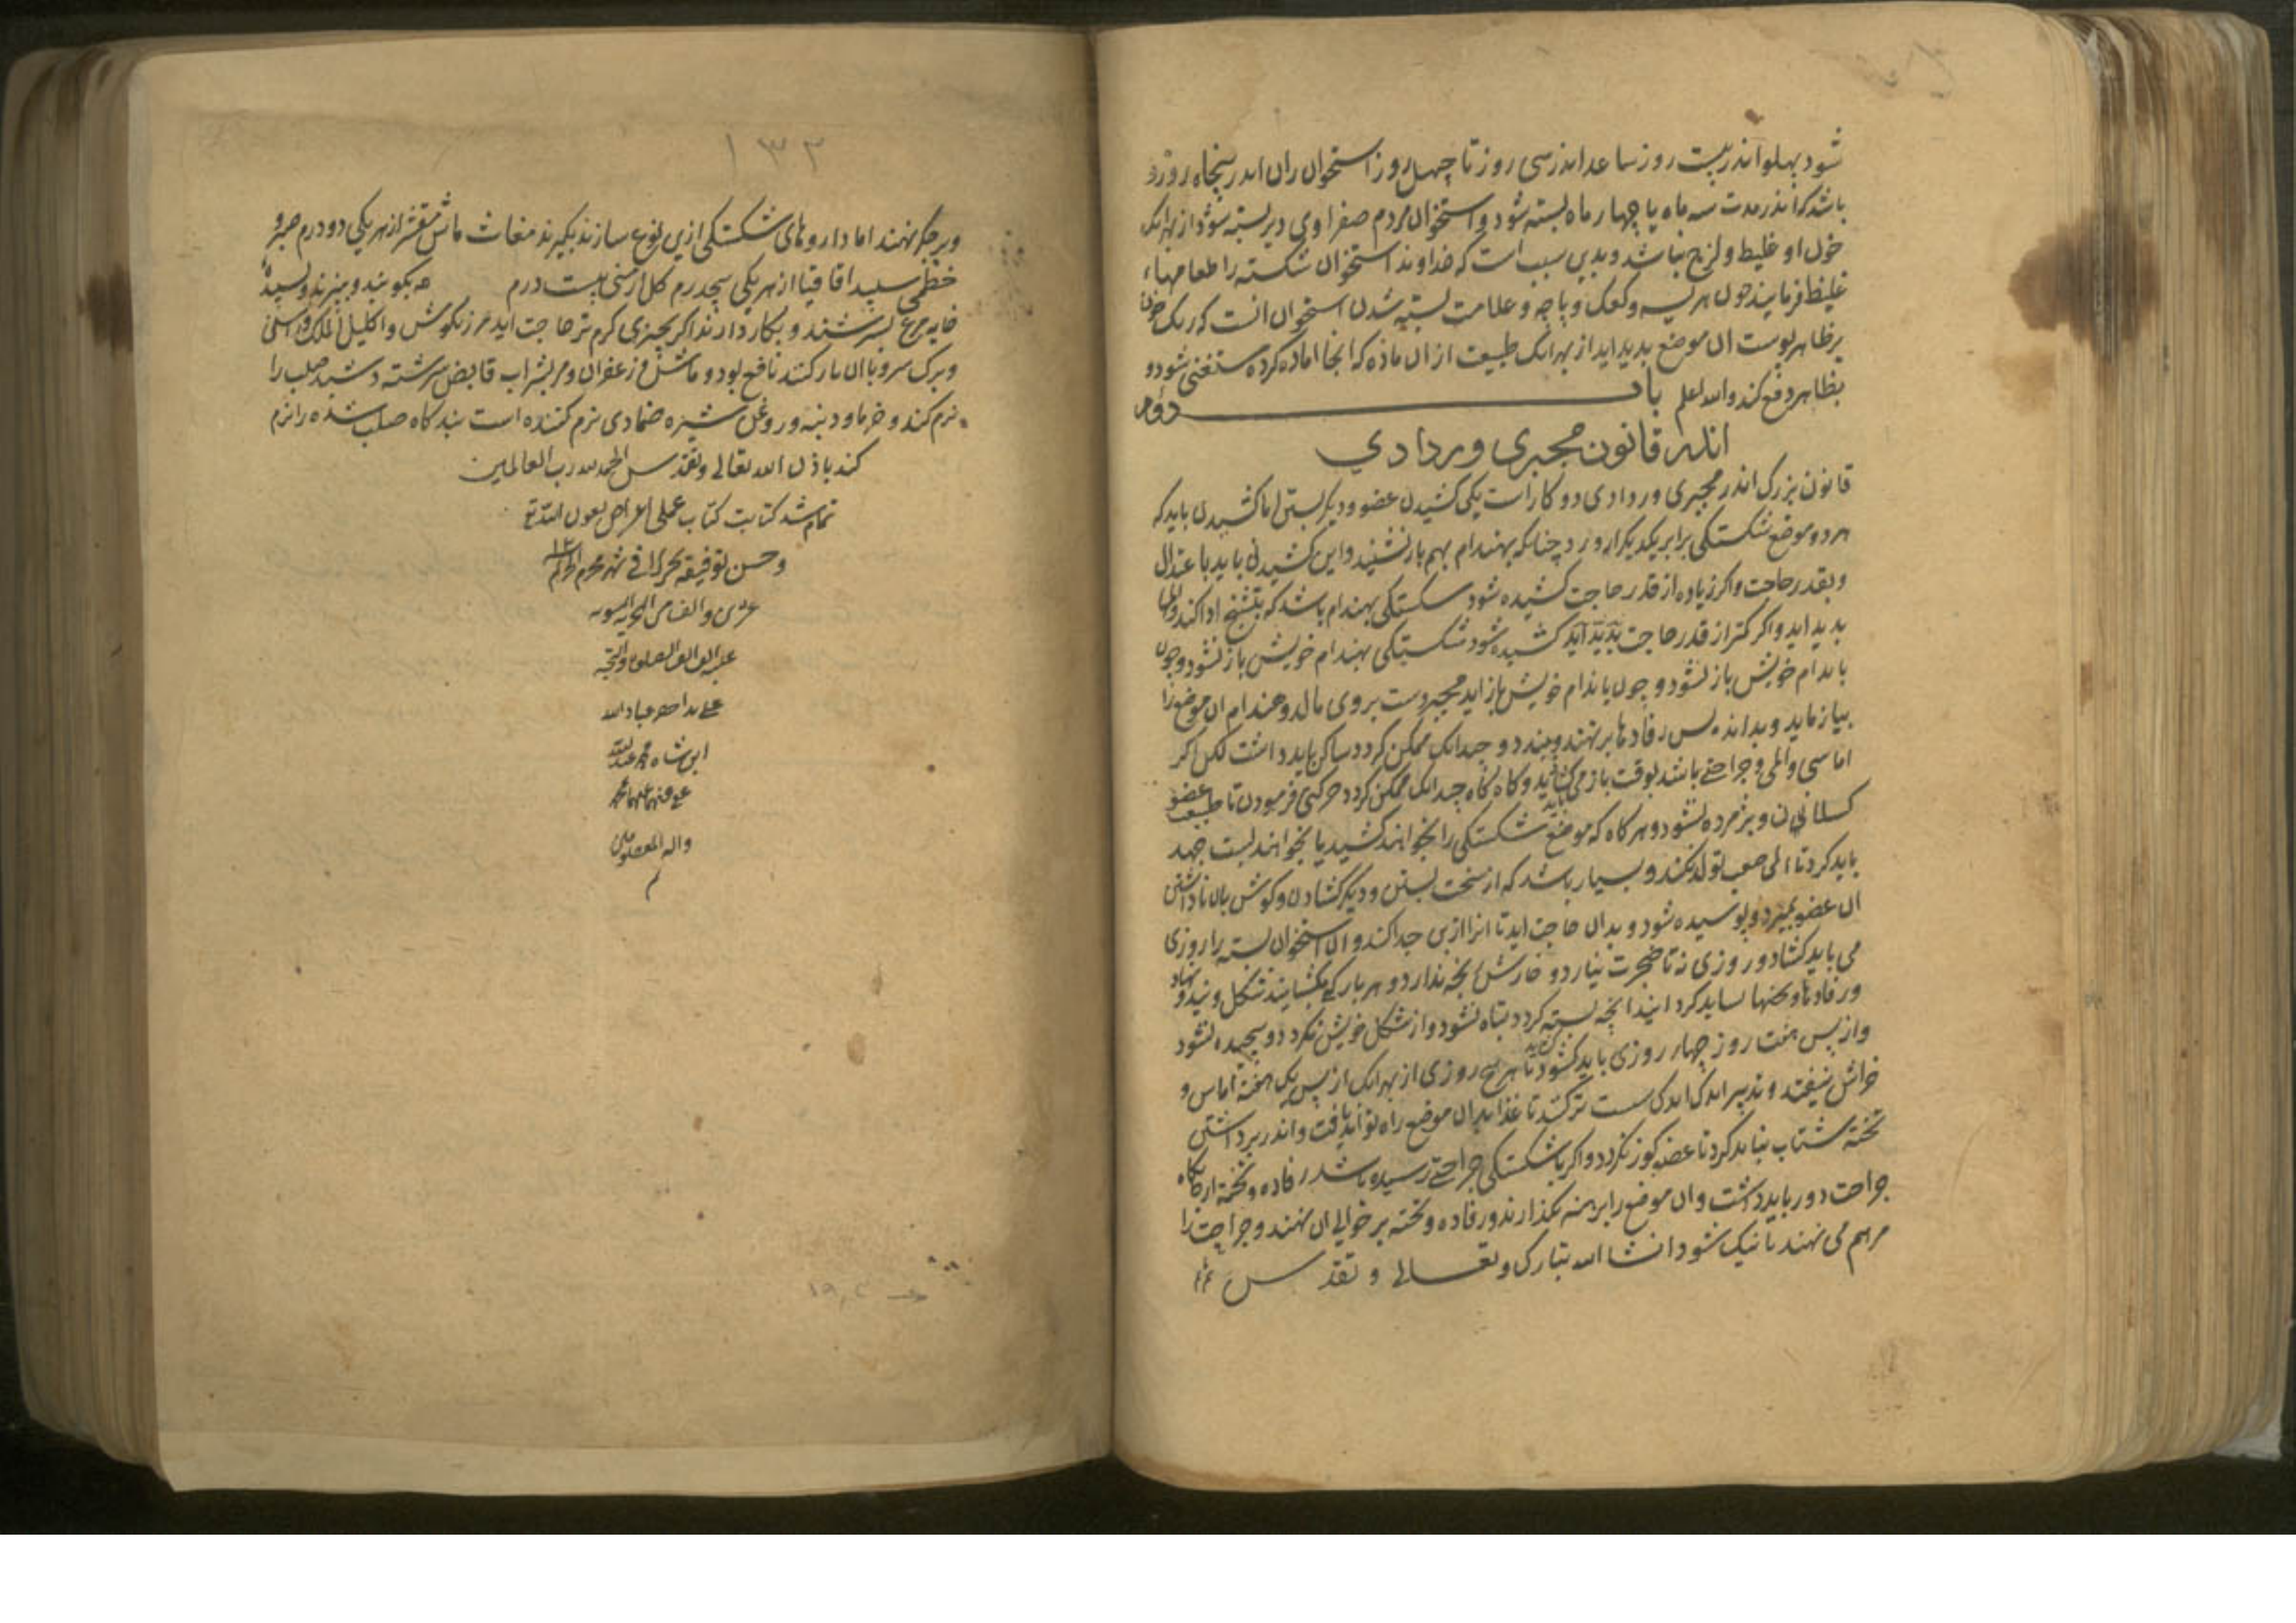 شود پهلو اندر بیست روز ساعد اندر سی روز تا چهل روز استخوان ران اندر پنجاه روز و
باشد که اندر مدت سه ماه یا چهار ماه بسته شود و استخوان مردم صفراوی دیر بسته شود از بهر انک
خون او غلیظ و لزج نباشد و بدین سبب است که خداوند استخوان شکسته را طعامهاء
غلیظ فرمایند چون هریسه و کعک و پاچه و علامت بسته شدن استخوان انست که رنگ خون
بر ظاهر پوست ان موضع بدید اید از بهر انک طبیعت از ان ماده که انجا اماده کرده مستغنی شود و
بظاهر دفع کند والله اعلم باب دوم
اندر قانون مجبری و ردادی
قانون بزرک اندر مجبری و ردادی دو کار است یکی کشیدن عضو و دیکر بستن اما کشیدن باید که
هر دو موضع شکستکی برابر یکدیکر ارورد چنانکه بهندام بهم باز نشیند و این کشیدن باید باعتدال
و بقدر حاجت و اکر زیاده از قدر حاجت کشیده شود شکستکی بهندام باشد که بتشنج ادا کند و
بدید اید و اکر کمتر از قدر حاجت بدید آید کشیده شود شکستکی بهندام خویش باز نشود و چون
باندام خویش باز نشود و چون باندام خویش باز اید مجبر دست بر وی مالد و هندام ان موضع را
بیازماید و بداند پس رفادها بر نهند و ببندد و چندانک ممکن کردد ساکن باید داشت لکن اکر
اماسی و المی و جراحتی باشد بوقت باز می کشاید و کاه کاه چندانک ممکن کردد حرکتی فرمودن تا طبیعت عضو
کسلانی و پژمرده نشود و هر کاه که موضع شکستکی را بخواهند کشید یا بخواهند بست جهد
باید کرد تا المی صعب تولد نکند و بسیار باشد که از سخت بستن و دیر کشادن و کوش بان ناداشتن
ان عضو بمیرد و پوسیده شود و بدان حاجت اید تا انرا از تن جدا کنند و ان استخوان بسته را روزی
می باید کشاد و روزی نه تا ضجرت نیارد و خارش رنجه ندارد و هر بار که بکشایند شکل و نهاد
و رفادها و تختها نباید کرد انید انچه بسته کردد تباه نشود و از شکل خویش نکردد و پیچیده نشود
و از پس هفت روز چهار روزی باید کشود تا پنج روزی از بهر انک از پس یک هفته اماس و
خارش نیفتد و تدبیر اندک اندک سست تر کنند تا غذا بدان موضع راه تواند یافت و اندر برداشتن
تخته شتاب نباید کرد تا عضو کوز نکردد و اکر با شکستکی جراحتی رسیده باشد رفاده و تخته از جایکاه
جراحت دور باید داشت و ان موضع را برهنه بگذارند و رفاده و تخته بر حوالی ان نهند و جراحت را
مرهم می نهند تا نیک شود انشا الله تبارک و تعالی و تقدس
۱۳۳
و بر جکر نهند اما داروهای شکستکی ازین نوع سازند بکیرند مغاث ماش مقشر از هر یکی دو درم صبر و
خطمی سپید اقاقیا از هر یکی پنجدرم کل ارمنی بیست درم همه بکوبند و ببزند و بسپیده
خایه مرغ بسرشند و بکار دارند اکر بچیزی کرم تر حاجت اید مرزنکوش و اکلیل الملک و راسن
و برک سرو با ان یار کنند نافع بود و ماش و زعفران و مر بشراب قابض سرشته دشبد صلب را
نرم کند و خرما و دنبه و روغن شیره ضمادی نرم کننده است بندکاه صلب شده را نرم
کند باذن الله تعالی و تقدس الحمد لله رب العالمین
تمام شد کتابت کتاب عملی اغراض بعون الله تع
و حسن توفیقه تحریرا فی شهر محرم الحرام
والف من الهجریه النبویه
علیه الف الف الصلوه والتحیه
علی ید احقر عباد الله
ابن شاه محمد
عفی عنهما بحمد
واله المعصومین
م